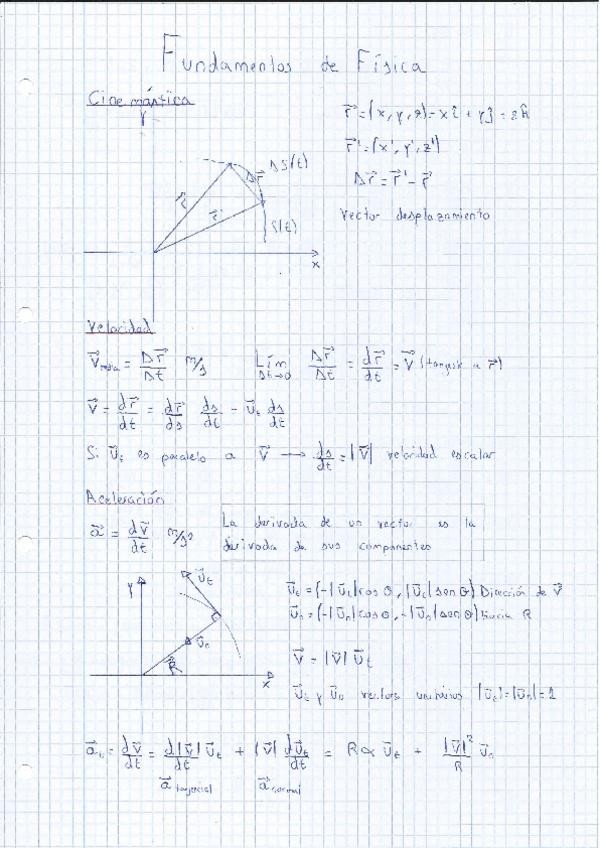 Fundamentos de Física
Cinemática
Y
r⃗ = (x, y, z) = xî + yĵ = zk̂
r⃗' = (x', y', z')
Δr⃗ = r⃗' - r⃗
Vector desplazamiento
ΔS(t)
Δr⃗
r⃗
r⃗'
S(t)
x
Velocidad
V⃗media = Δr⃗/Δt m/s Lím Δt→0 Δr⃗/Δt = dr⃗/dt = V⃗ (tangente a r⃗)
V⃗ = dr⃗/dt = dr⃗/ds ds/dt - U⃗t ds/dt
Si U⃗t es paralelo a V⃗ → ds/dt = |V⃗| velocidad escalar
Aceleración
a⃗ = dV⃗/dt m/s²
La derivada de un vector es la
derivada de sus componentes
Y
U⃗t
U⃗n
R⃗
x
U⃗t = (-|U⃗t| cos θ, |U⃗t| sen θ) Dirección de V⃗
U⃗n = (-|U⃗n| cos θ, -|U⃗n| sen θ) hacia R
V⃗ = |V⃗| U⃗t
U⃗t y U⃗n vectores unitarios |U⃗t| = |U⃗n| = 1
= dV⃗/dt = d|V⃗|/dt U⃗t + |V⃗| dU⃗t/dt = R∝ U⃗t + |V⃗|²/R U⃗n
a⃗ tangencial a⃗ normal